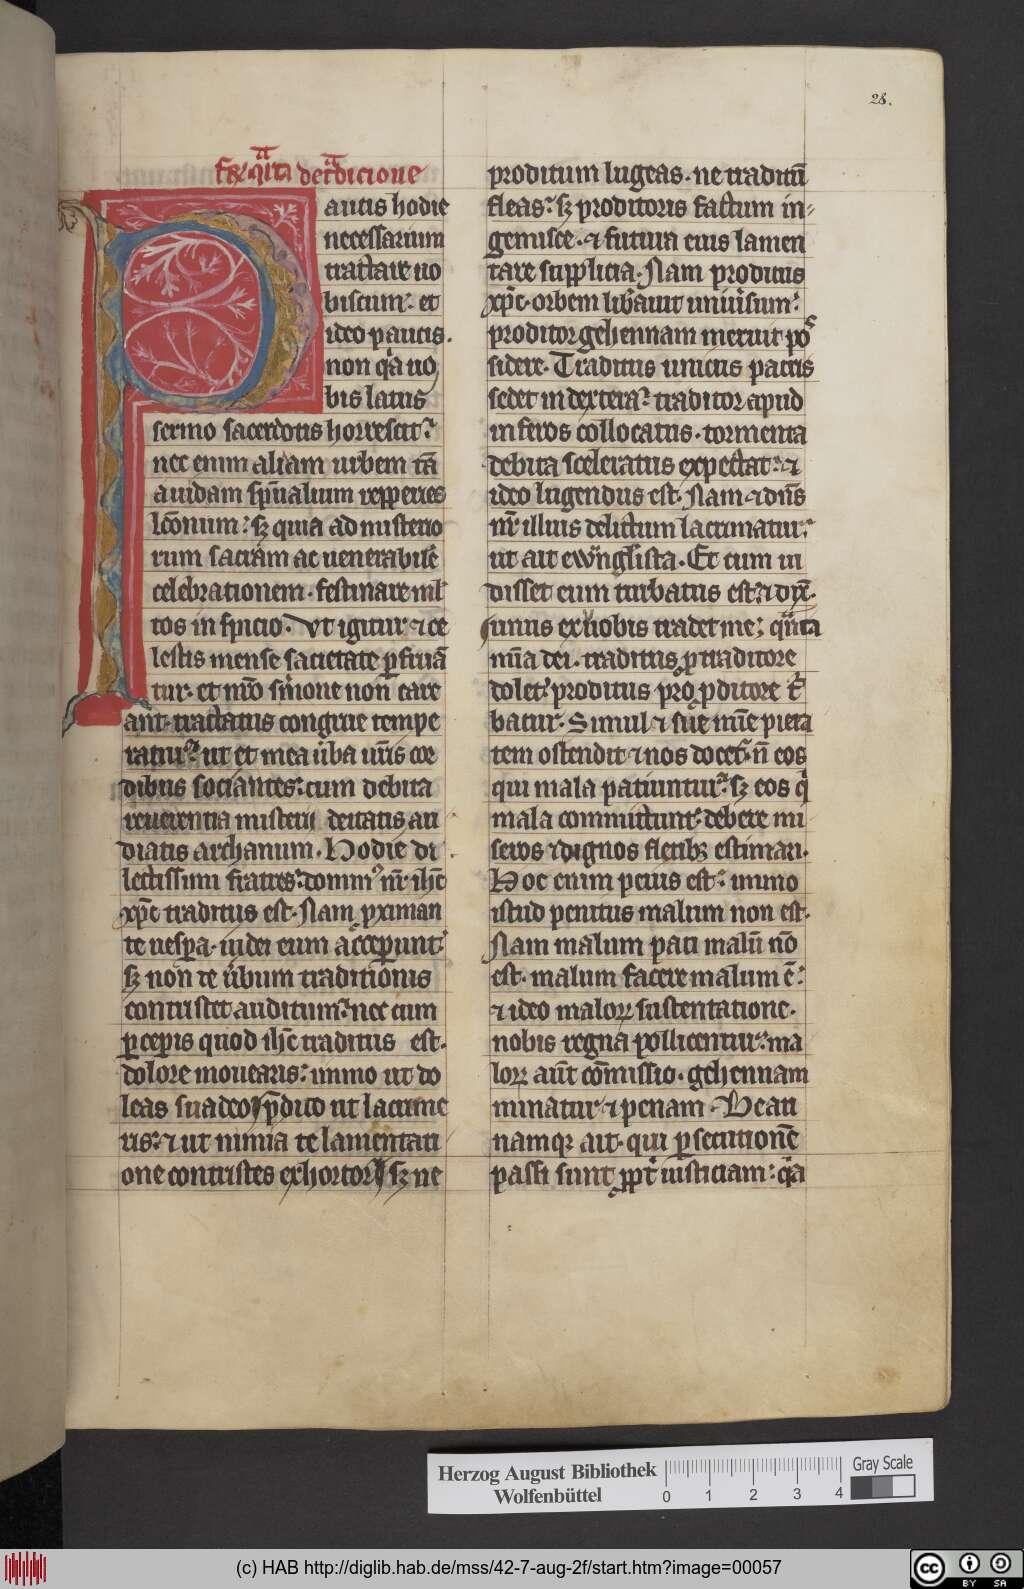 28.
fr̄ q̄ita de t̄dicione
Paucis hodie
necessarium
tractare uo
biscum: et
ideo paucis.
non q̄a uo
bis latus
sermo sacerdotis horrescit:
nec enim aliam urbem tā
auidam sp̄ualium repperies
sed quia ad misterio
rum sacram ac uenerabilē
celebrationem. festinare ml̄
tos inspicio. Vt igitur ⁊ ce
lestis mense sacietate ꝑfruā
tur. et nr̄o s̄mone non care
ant. tractatus congrue tempe
ratur: ut et mea ūba ur̄is cor
dibus sociantes: cum debita
reuerentia misterii deitatis au
diatis archanum. Hodie di
lectissimi fratres: domin⁹ nr̄ ih̄c
xp̄c traditus est. Nam ꝓximan
te uesꝑa. iudei eum acceperunt:
sꝫ non te ūbum traditionis
contristet auditum: nec cum
ꝑcepis quod ih̄c traditus est.
dolore mouearis: immo ut do
leas suadeo p̄dico ut lacrime
ris: ⁊ ut nimia te lamentati
one contristes exhortor sꝫ ne
proditum lugeas. ne traditū
fleas: sꝫ proditoris factum in-
gemisce. ⁊ futura eius lamen
tare supplicia. Nam proditus
xp̄c. orbem lib̄auit uniū̄sum:
proditor gehennam meruit pos
sidere. Traditus unicus patris
sedet in dextera: traditor apud
inferos collocatus. tormenta
debita sceleratus expectat: ⁊
ideo lugendus est. Nam ⁊ dn̄s
nr̄ illius delictum lacrimatur:
ut ait ewāglista. Et cum ui
disset eum turbatus est: ⁊ dix̄.
unus ex uobis tradet me: q̄nta
mīa dei. traditus ꝓ traditore
dolet: proditus pro ꝓditore t̄
batur. Simul ⁊ sue mīe pieta
tem ostendit. ⁊ nos docet. n̄ eos
qui mala patiuntur: sꝫ eos q̄
mala committunt: debere mi
seros ⁊ dignos fletibꝫ estimari.
Hoc enim peius est: immo
istud penitus malum non est.
Nam malum pati malū nō
est. malum facere malum ē:
⁊ ideo maloꝝ sustentatione.
nobis regna pollicentur: ma
loꝝ aūt cōmissio. gehennam
minatur ⁊ penam. Beati
namqꝫ ait. qui ꝑsecutionē
passi sunt ꝓpt̄ iusticiam: q̄a
Herzog August Bibliothek
Wolfenbüttel
0 1 2 3 4
Gray Scale
(c) HAB http://diglib.hab.de/mss/42-7-aug-2f/start.htm?image=00057
cc BY SA